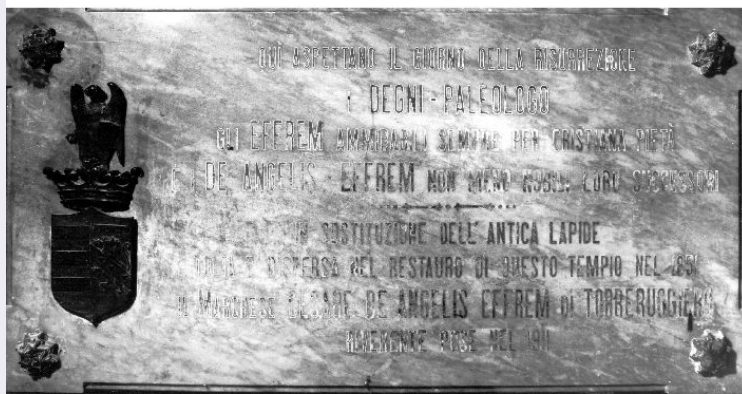 QUI ASPETTANO IL GIORNO DELLA RISURREZIONE
I DEGNI - PALEOLOGO
GLI EFFREM AMMIRABILI SEMPRE PER CRISTIANA PIETÀ
E I DE ANGELIS - EFFREM NON MENO NOBILI LORO SUCCESSORI
IN SOSTITUZIONE DELL'ANTICA LAPIDE
DISPERSA NEL RESTAURO DI QUESTO TEMPIO NEL
IL MARCHESE CESARE DE ANGELIS EFFREM DI TORRERUGGIERO
RIVERENTE POSE NEL 1911